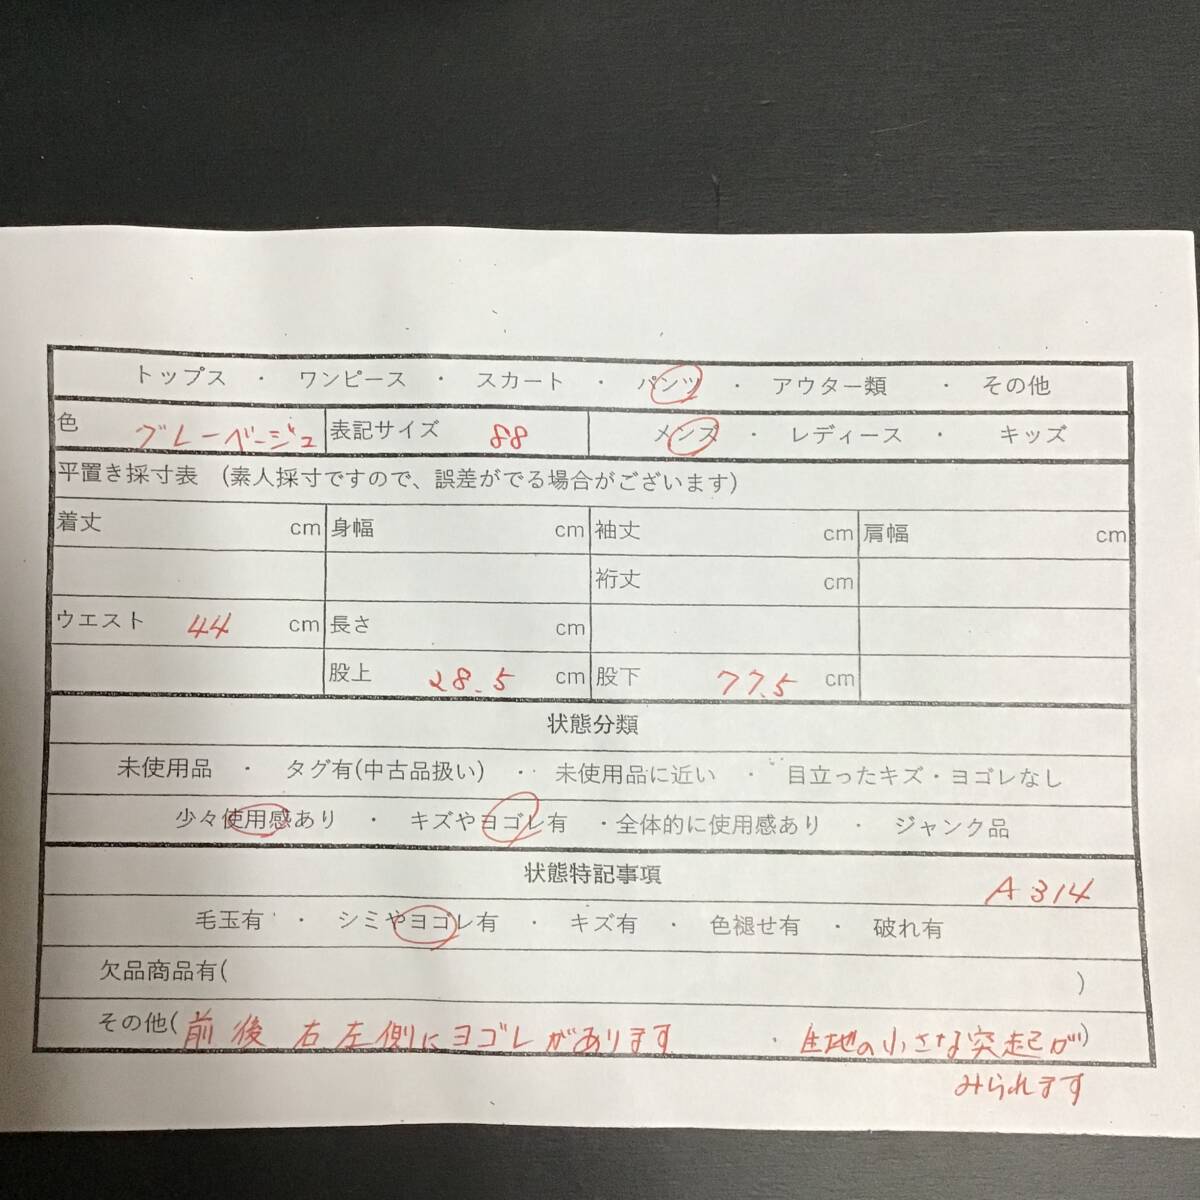 トップス ・ ワンピース ・ スカート ・ パンツ ・ アウター類 ・ その他
色 グレーベージュ 表記サイズ 88 メンズ ・ レディース ・ キッズ
平置き採寸表 (素人採寸ですので、誤差がでる場合がございます)
着丈 cm 身幅 cm 袖丈 cm 肩幅 cm
裄丈 cm
ウエスト 44 cm 長さ cm
股上 28.5 cm 股下 77.5 cm
状態分類
未使用品 ・ タグ有(中古品扱い) ・ 未使用品に近い ・ 目立ったキズ・ヨゴレなし
少々使用感あり ・ キズやヨゴレ有 ・全体的に使用感あり ・ ジャンク品
状態特記事項 A314
毛玉有 ・ シミやヨゴレ有 ・ キズ有 ・ 色褪せ有 ・ 破れ有
欠品商品有( )
その他(前後 右左側にヨゴレがあります ・生地の小さな突起が)
みられます